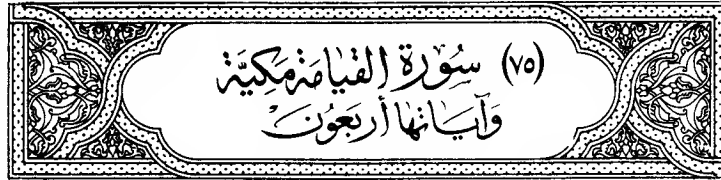 (٧٥) سُوْرَة القيَامَة مَكيَّة
وَآيَانها أربَعُونَ